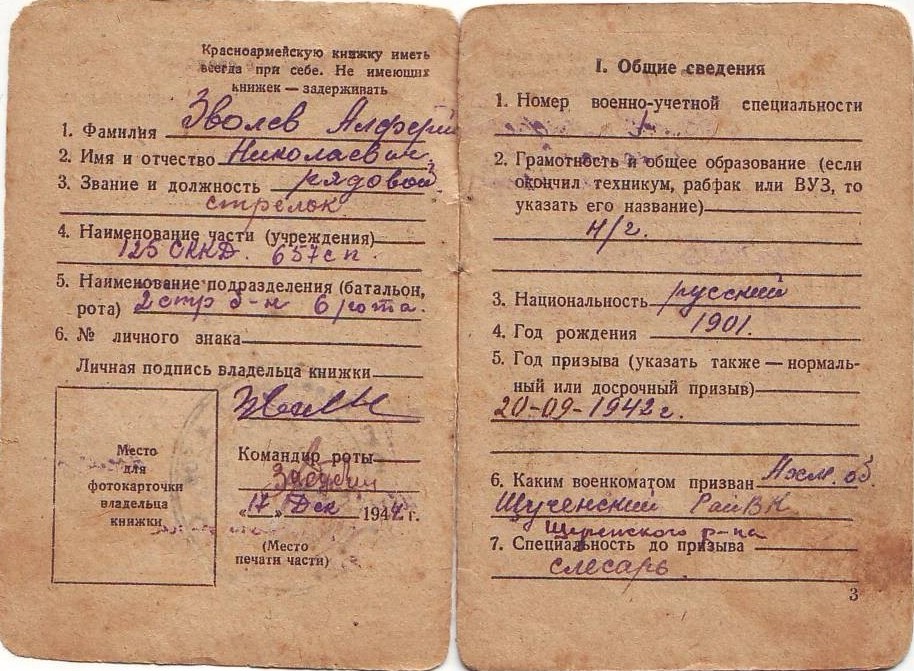 Красноармейскую книжку иметь
всегда при себе. Не имеющих
книжек — задерживать
1. Фамилия Зволев Алферий
2. Имя и отчество Николаевич.
3. Звание и должность рядовой.
стрелок
4. Наименование части (учреждения)
125 СККД. 657 сп.
5. Наименование подразделения (батальон,
рота) 2 стр б-н 6 рота.
6. № личного знака
Личная подпись владельца книжки
Место
для
фотокарточки
владельца
книжки
Командир роты
„17" Дек 1942 г.
(Место
печати части)
I. Общие сведения
1. Номер военно-учетной специальности
1
2. Грамотность и общее образование (если
окончил техникум, рабфак или ВУЗ, то
указать его название)
н/г.
3. Национальность русский
4. Год рождения 1901.
5. Год призыва (указать также — нормаль-
ный или досрочный призыв)
20-09-1942 г.
6. Каким военкоматом призван Акм. об.
Щученский РайВК
Щученского р-на
7. Специальность до призыва
слесарь
3